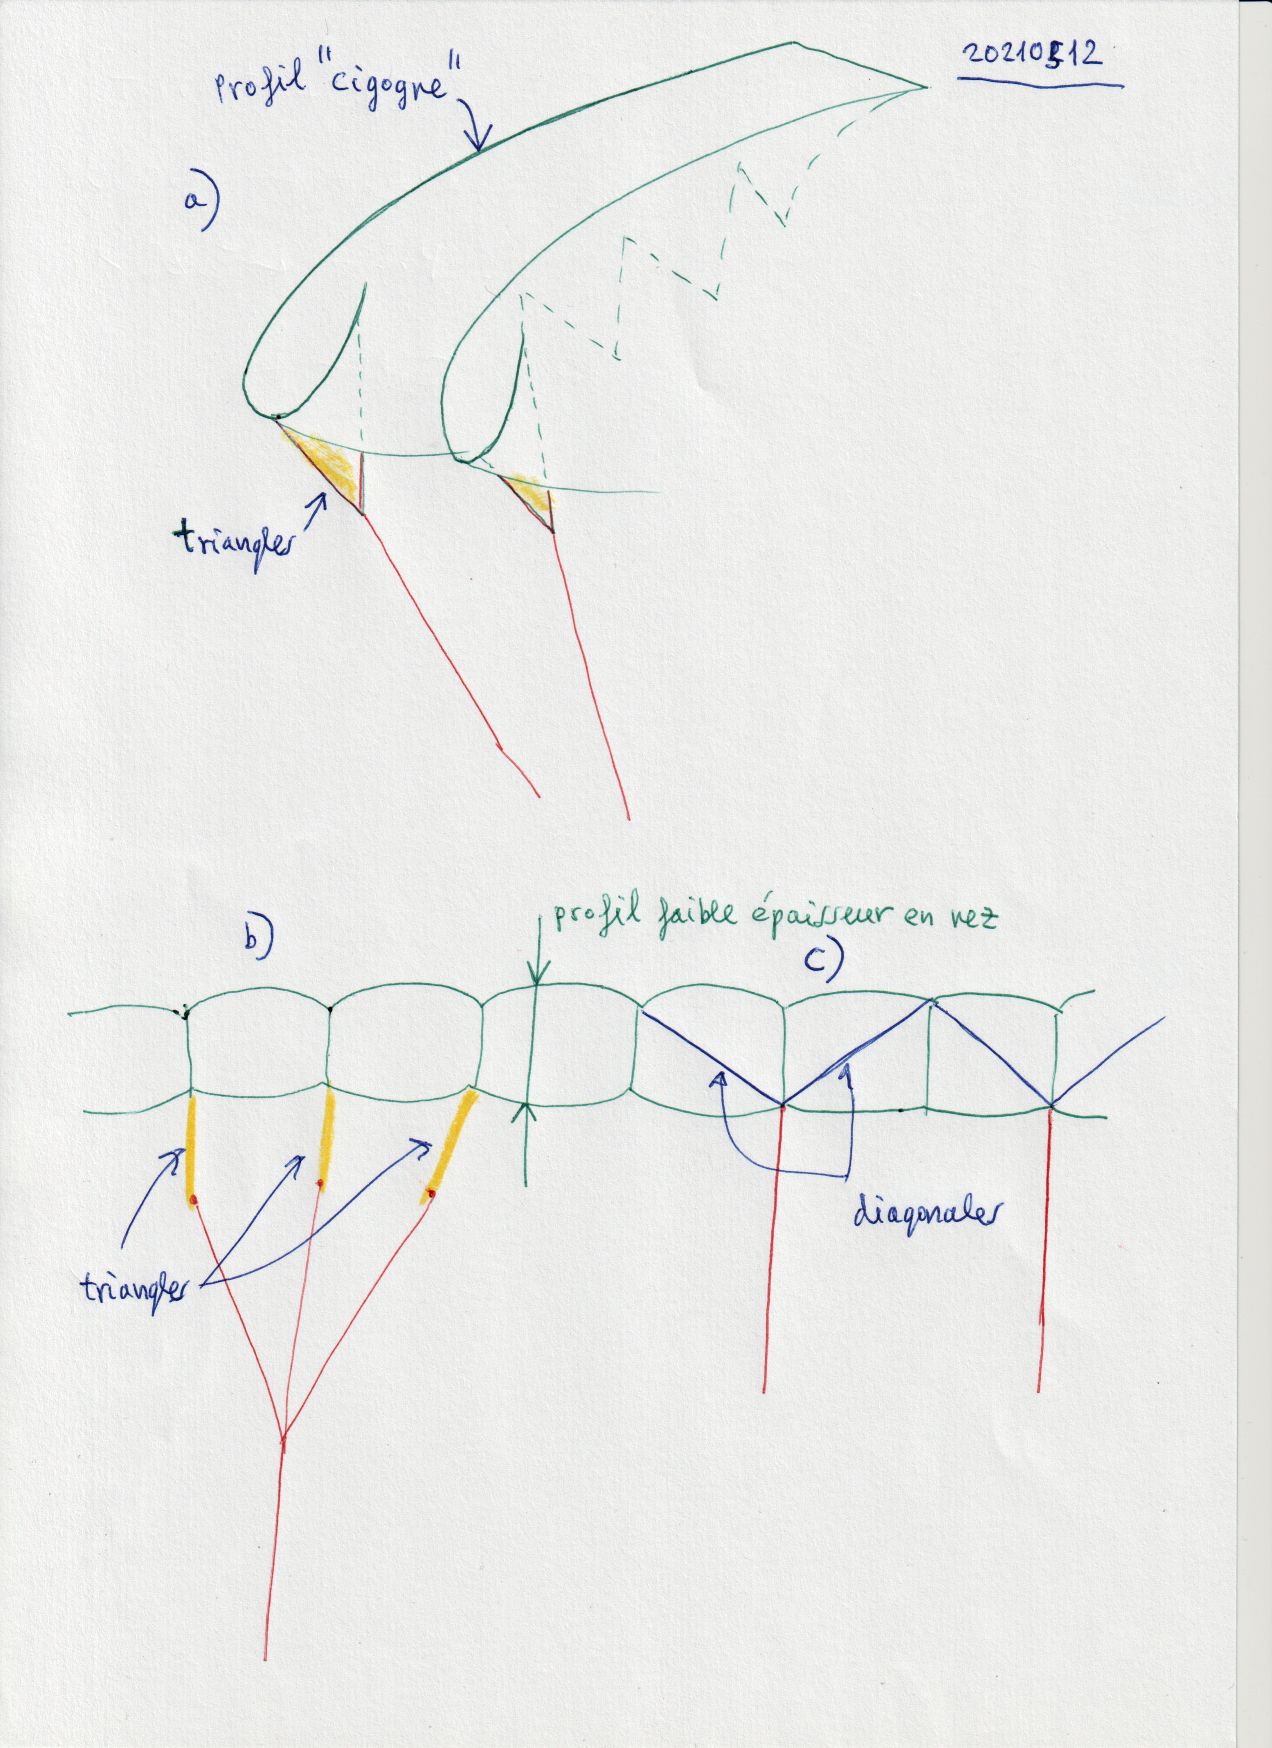 20210512
Profil "cigogne"
a)
triangles
profil faible épaisseur en nez
b)
c)
diagonales
triangles